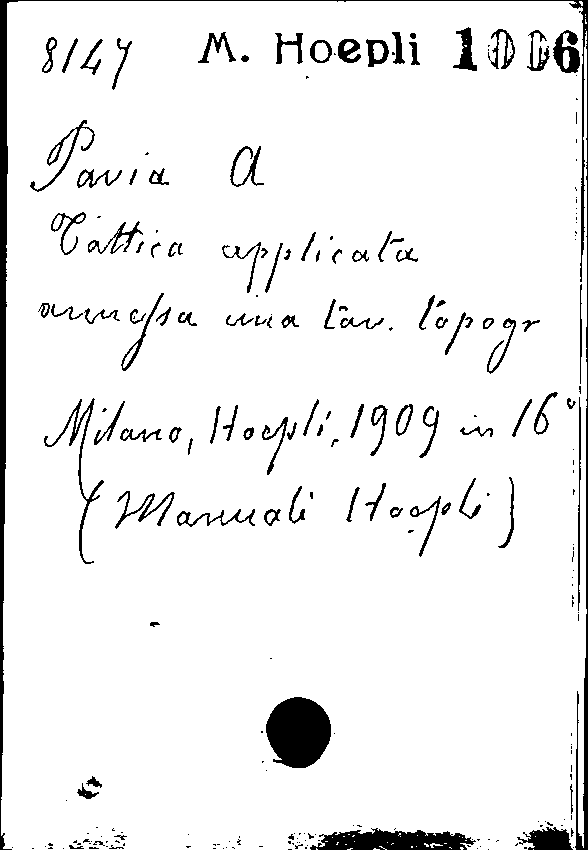 8147 M. Hoepli 1006
Pavia A
Tattica applicata
annessa una tav. topogr
Milano, Hoepli, 1909 in 16°
(Manuali Hoepli)